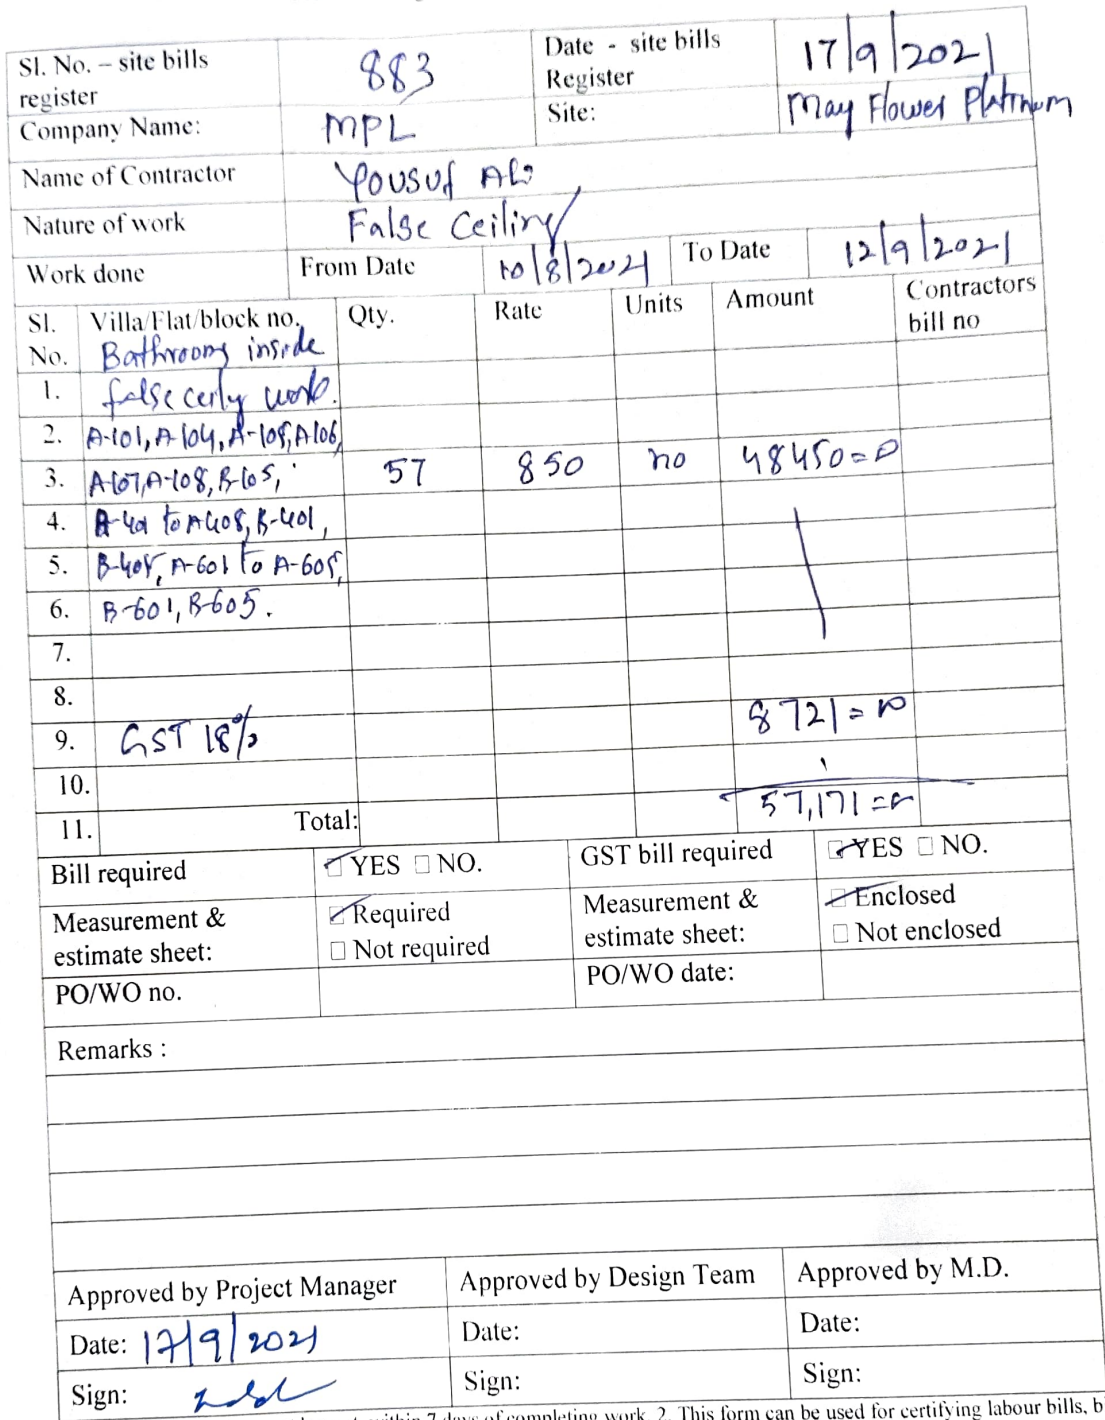 Sl. No. – site bills register 883 Date - site bills Register 17/9/2021
Company Name: MPL Site: May Flower Platinum
Name of Contractor Yousuf Ali
Nature of work False Ceiling
Work done From Date 10/8/2021 To Date 12/9/2021
Sl. No. Villa/Flat/block no. Qty. Rate Units Amount Contractors bill no
Bathrooms inside
1. false ceily work.
2. A-101, A-104, A-105, A106,
3. A-107, A-108, B-105, 57 850 no 48450=00
4. A-401 to A408, B-401,
5. B-405, A-601 to A-605,
6. B-601, B-605.
7.
8.
9. GST 18% 8721=00
10.
11. Total: 57,171=00
Bill required YES NO. GST bill required YES NO.
Measurement & estimate sheet: Required Not required Measurement & estimate sheet: Enclosed Not enclosed
PO/WO no. PO/WO date:
Remarks :
Approved by Project Manager Approved by Design Team Approved by M.D.
Date: 17/9/2021 Date: Date:
Sign: Sign: Sign:
within 7 days of completing work. 2. This form can be used for certifying labour bills, b